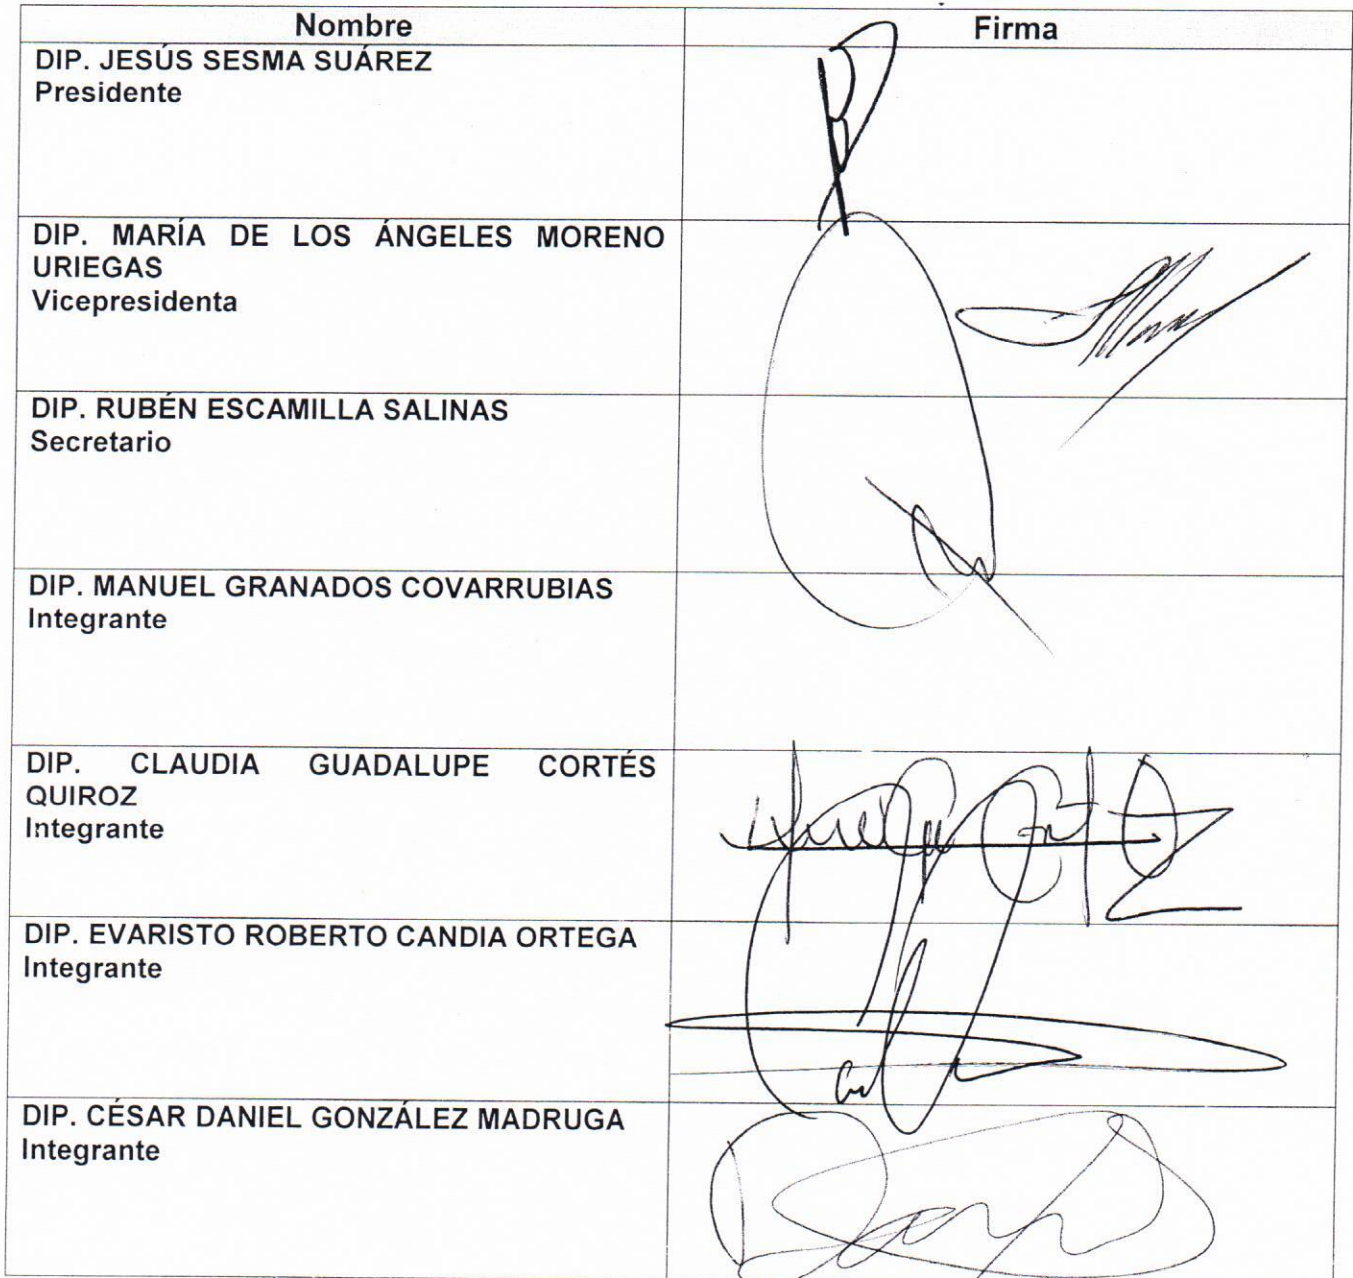 Nombre
Firma
DIP. JESÚS SESMA SUÁREZ
Presidente
DIP. MARÍA DE LOS ÁNGELES MORENO
URIEGAS
Vicepresidenta
DIP. RUBÉN ESCAMILLA SALINAS
Secretario
DIP. MANUEL GRANADOS COVARRUBIAS
Integrante
DIP. CLAUDIA GUADALUPE CORTÉS
QUIROZ
Integrante
DIP. EVARISTO ROBERTO CANDIA ORTEGA
Integrante
DIP. CÉSAR DANIEL GONZÁLEZ MADRUGA
Integrante